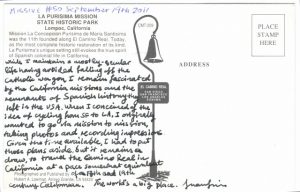 MISSIVE #50 September 19th 2011
LA PURISIMA MISSION
STATE HISTORIC PARK
Lompoc, California
Mission La Concepcion Purisima de Maria Santisima
was the 11th founded along El Camino Real. Today,
as the most complete historic restoration of its kind,
La Purisima's unique setting still evokes the true spirit
of Spanish colonial life in California.
while I maintain a mostly-secular
life having avoided falling off the
Catholic wagon, I remain fascinated
by the California missions and the
remnants of Spanish history they
left in the USA. when I conceived of the
idea of cycling from SF to LA, I originally
wanted to go via mission to mission,
taking photos and recording impressions.
Given the time available, I had to put
those plans aside, but it remains a
dream, to transit the Camino Real in
California at a pace somewhat equivalent
of a 18th and 19th
century Californian. The world's a big place.
EL CAMINO REAL
PLACE
STAMP
HERE
ADDRESS